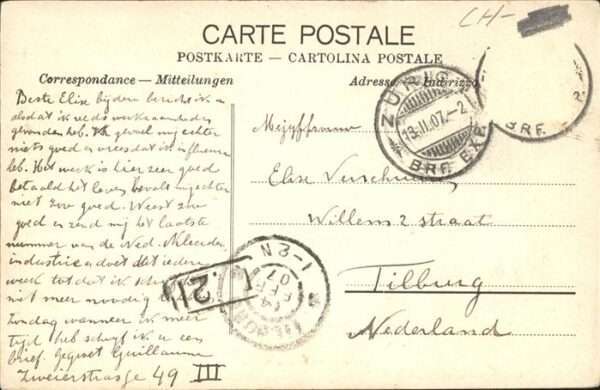 CH-
CARTE POSTALE
POSTKARTE — CARTOLINA POSTALE
Correspondance — Mitteilungen
Adresse — Indirizzo
Beste Elise bij deze bericht ik u
als dat ik reeds werk aanboden
gevonden heb. Ik gevoel mij echter
niets goed en vrees dat ik influenza
heb. Het werk is hier zeer goed
betaald het leven bevalt mij echter
niet zoo goed. Weest zoo
goed en zend mij het laatste
nummer van de Ned. Kleeder
industrie en doet dit iedere
week tot dat ik schrijf
niet meer noodig te
Zondag wanneer ik meer
tijd heb schrijf ik u een
brief. Gegroet Guillaume
Zweierstrasse 49 III
Mejuffrouw
Elise Verschu
Willem 2 straat
Tilburg
Nederland
ZÜRICH
13.II.07.-2
BRF. EXP.
BRF.
R.
1-2N
14
FEB
07
2